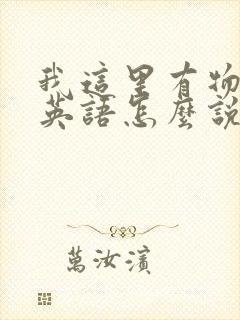 我這里有物
英語怎麼說
萬汝濱